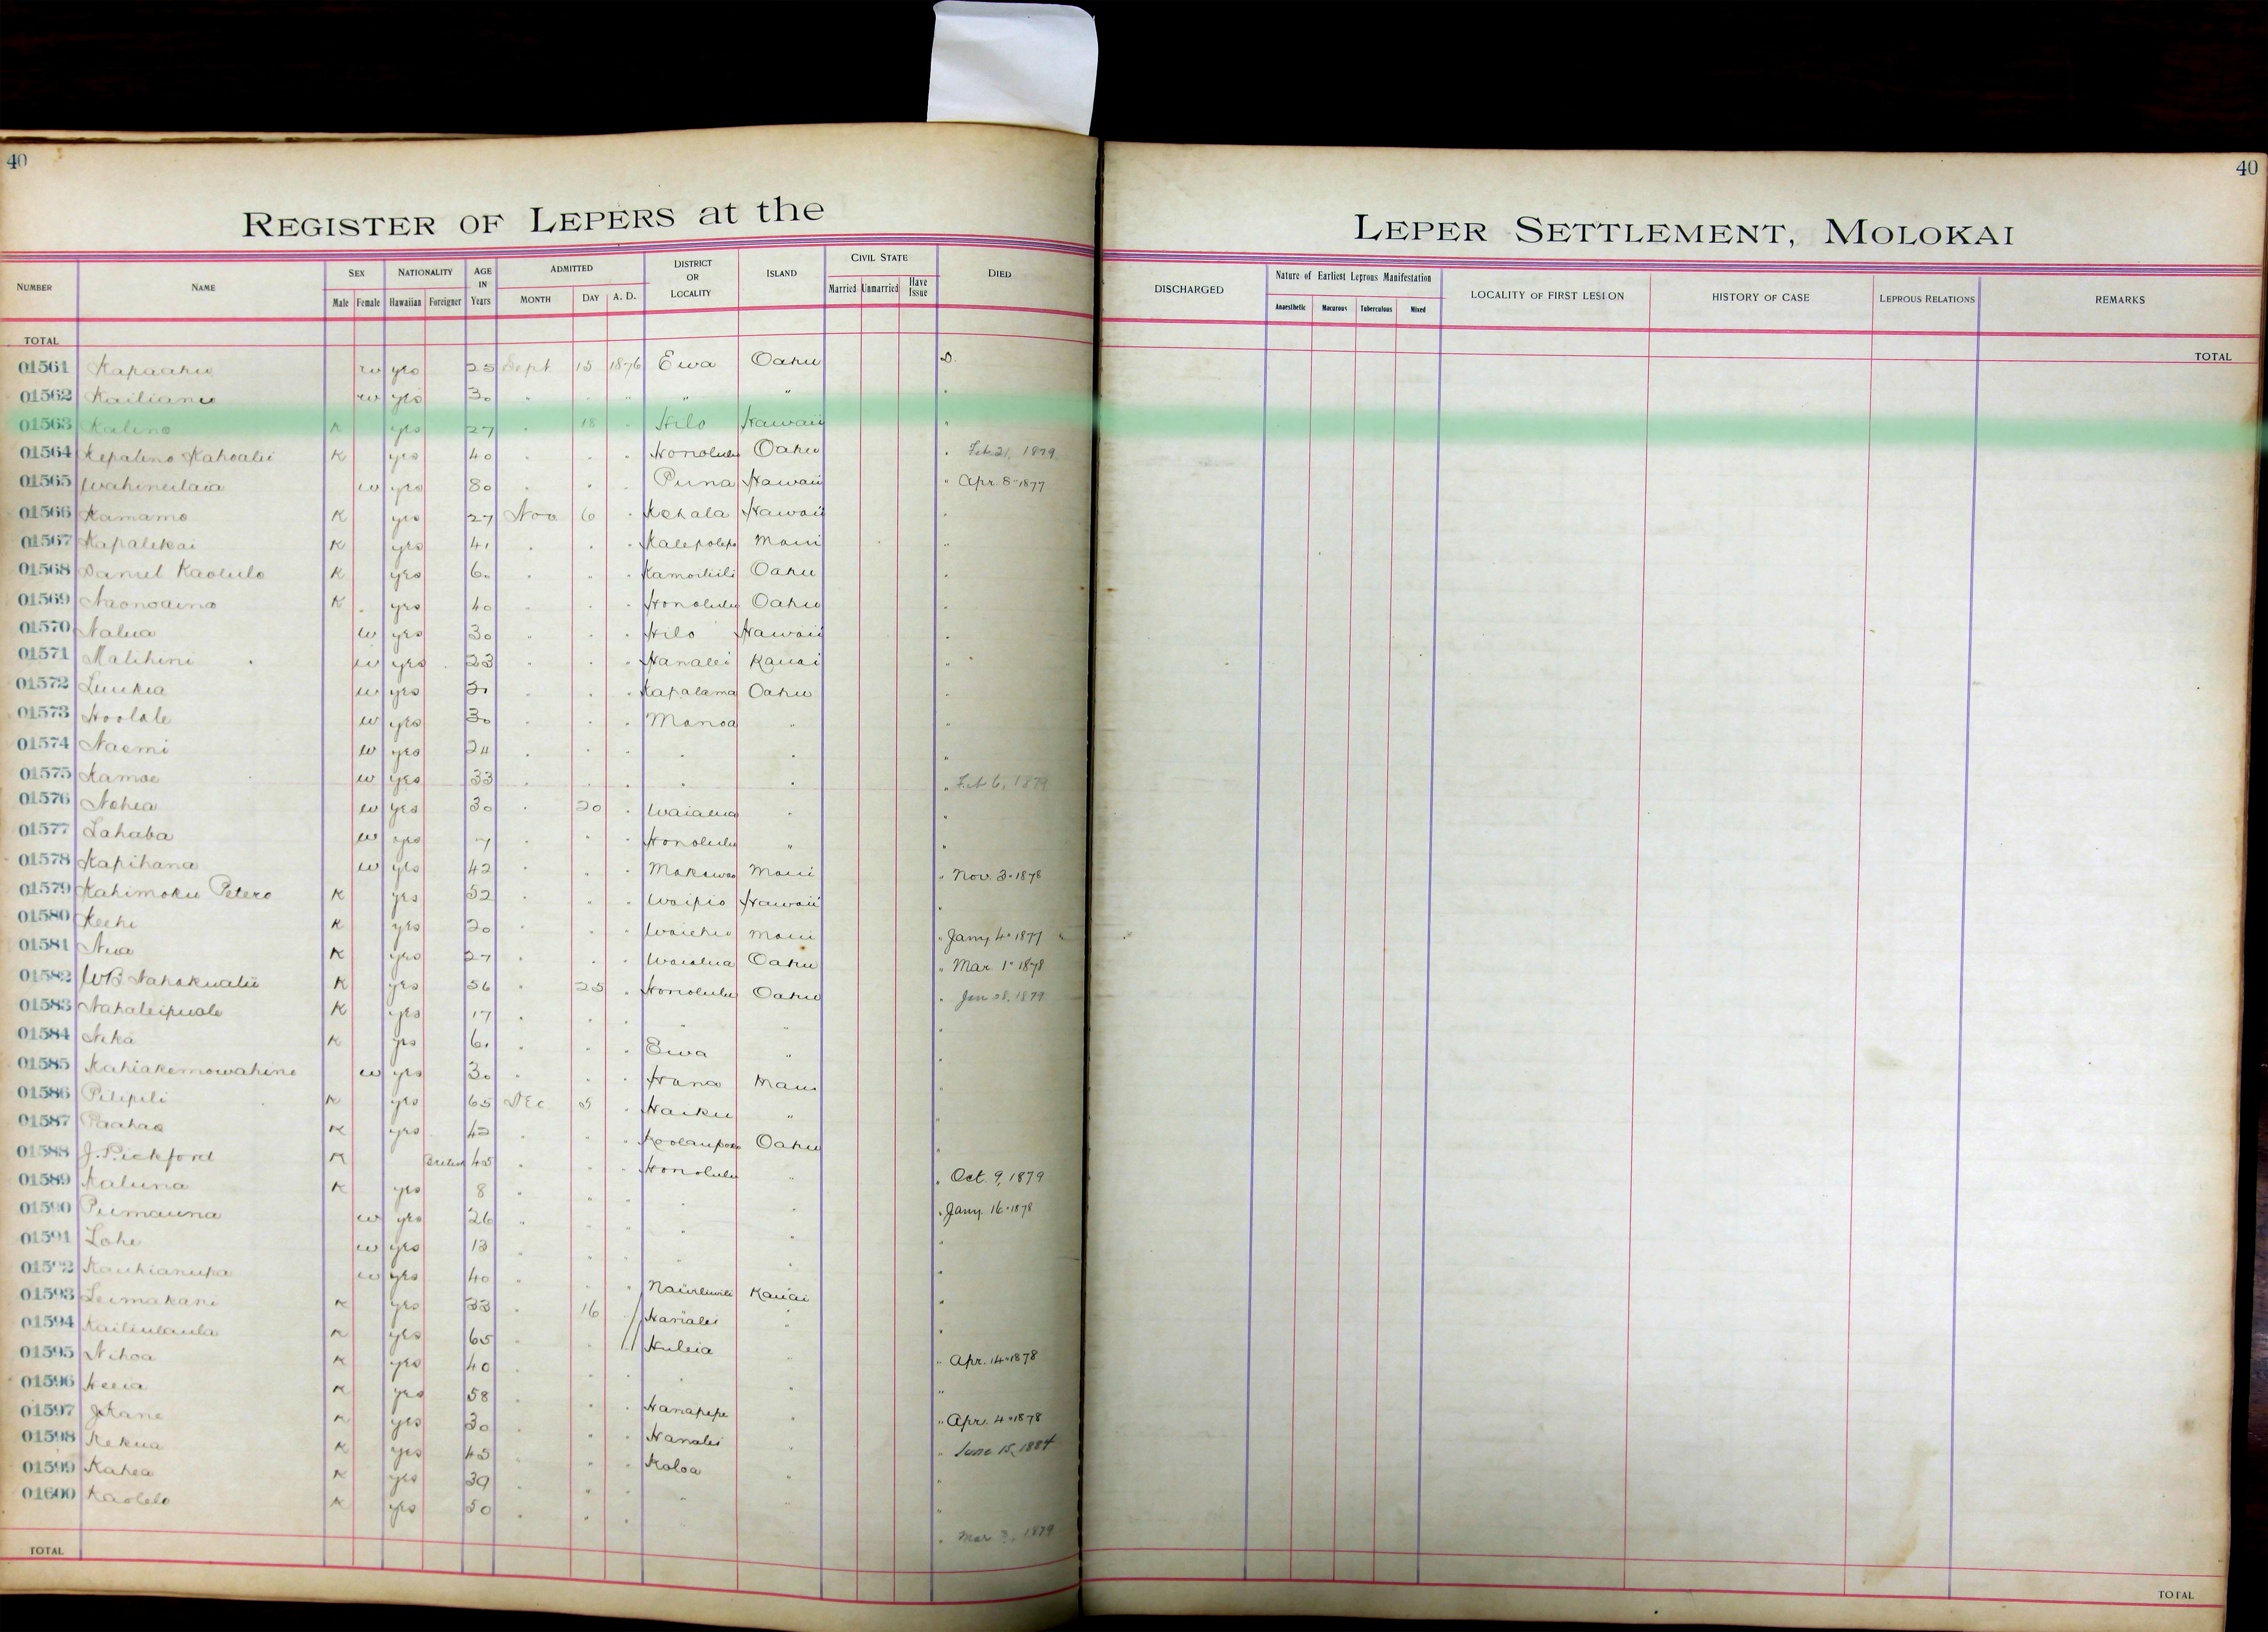 40
40
REGISTER OF LEPERS at the
LEPER SETTLEMENT, MOLOKAI
NUMBER NAME SEX Male Female NATIONALITY Hawaiian Foreigner AGE IN Years ADMITTED MONTH DAY A. D. DISTRICT OR LOCALITY ISLAND CIVIL STATE Married Unmarried Have Issue DIED
DISCHARGED Nature of Earliest Leprous Manifestation Anaesthetic Macurous Tuberculous Mixed LOCALITY OF FIRST LESION HISTORY OF CASE LEPROUS RELATIONS REMARKS
TOTAL
TOTAL
01561 Kapaahu w yes 25 Sept 15 1876 Ewa Oahu D.
01562 Kailianu w yes 30 " " " " " "
01563 Kalino K yes 27 " 18 " Hilo Hawaii "
01564 Kepalino Kahoalii K yes 40 " " " Honolulu Oahu " Feb. 21, 1879
01565 Wahineilaia w yes 80 " " " Puna Hawaii " Apr. 8" 1877
01566 Kamamo K yes 27 Nov 6 " Kohala Hawaii "
01567 Kapalikai K yes 41 " " " Kalepolepo Maui "
01568 Daniel Kaolulo K yes 60 " " " Kamoiliili Oahu "
01569 Naonoaina K yes 40 " " " Honolulu Oahu "
01570 Nalua w yes 30 " " " Hilo Hawaii "
01571 Malihini w yes 23 " " " Hanalei Kauai "
01572 Luukia w yes " " " Kapalama Oahu "
01573 Hoolale w yes 30 " " " Manoa " "
01574 Naemi w yes 24 " " " " " "
01575 Kamae w yes 33 " " " " " " Feb 6, 1879
01576 Nohea w yes 30 " 20 " Waialua " "
01577 Lahaba w yes 7 " " Honolulu " "
01578 Kapihana w yes 42 " " " Makawao Maui " Nov. 3" 1878
01579 Kahimoku Petero K yes 52 " " " Waipio Hawaii "
01580 Keehi K yes 20 " " " Waiehu Maui " Jany 4" 1877
01581 Niua K yes 27 " " " Waialua Oahu " Mar. 1" 1878
01582 WB Nahokualii K yes 56 " 25 " Honolulu Oahu " Jan 28, 1879
01583 Nahaleipuale K yes 17 " " " " " "
01584 Nika K yes 61 " " " Ewa " "
01585 Kahiakemowahine w yes 30 " " " Hana Maui "
01586 Pilipili K yes 65 Dec 5 " Haiku " "
01587 Paahao K yes 42 " " " Koolaupoko Oahu "
01588 J. Pickford K British 45 " " " Honolulu " " Oct. 9, 1879
01589 Kaluna K yes 8 " " " " " " Jany. 16" 1878
01590 Puimauna w yes 26 " " " " " "
01591 Lohe w yes 13 " " " " "
01592 Kauhianupa w yes 40 " " " Nawiliwili Kauai "
01593 Leimakani K yes 33 " 16 Hanalei " "
01594 Kailiulaula K yes 65 " " Huleia " " Apr. 14" 1878
01595 Nihoa K yes 40 " " " " "
01596 Heeia K yes 58 " " " Hanapepe " " Apr. 4" 1878
01597 J Kane K yes 30 " " " Hanalei " " June 15, 1884
01598 Kekua K yes 45 " " " Koloa " "
01599 Kahea K yes 39 " " " " " "
01600 Kaolelo K yes 50 " " " " Mar 3, 1879
TOTAL
TOTAL